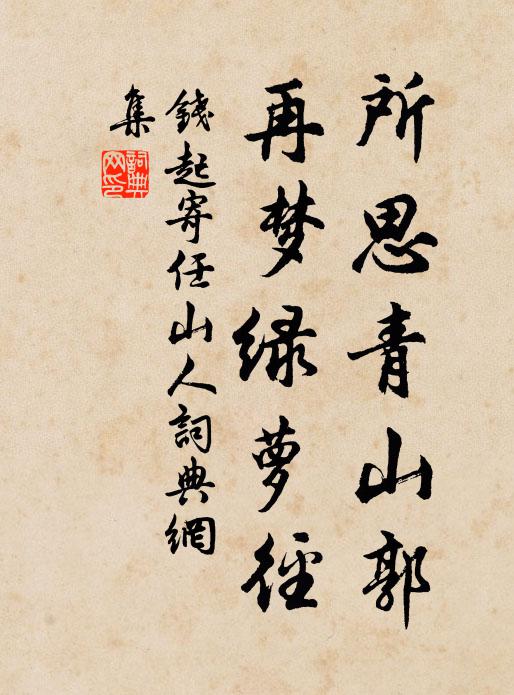 所思青山郭
再梦绿萝径
錢起寄任山人詞典網
集
詞典網印